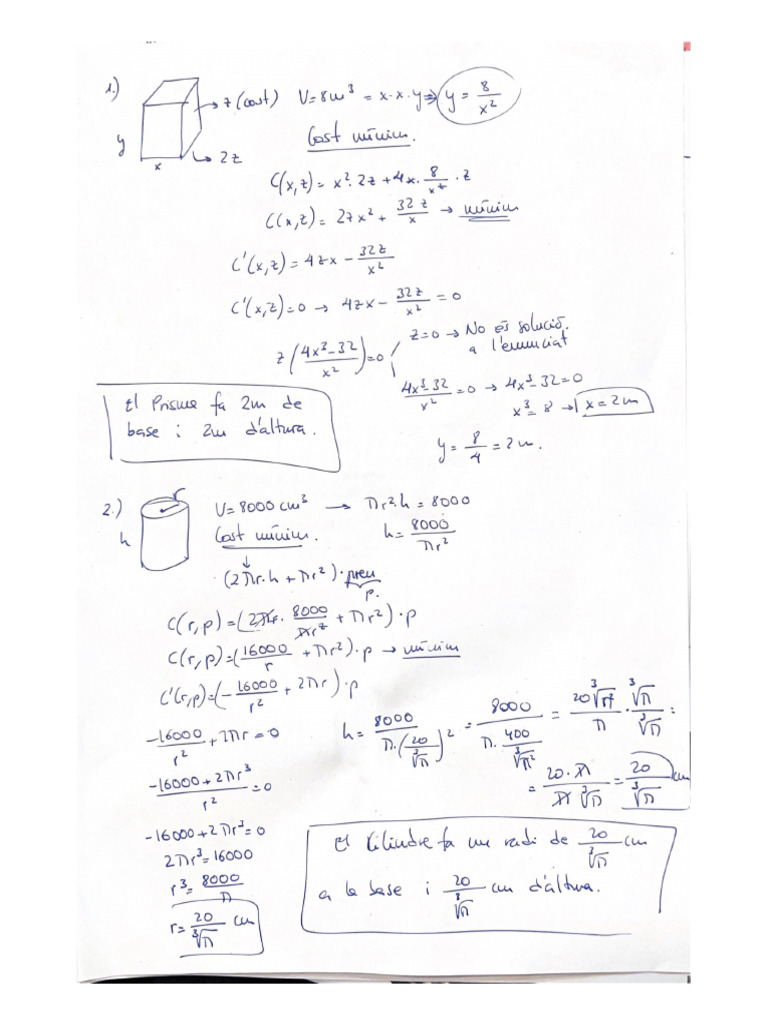 1.)
z (cost) V=8m³ = x·x·y ⇒ y = 8/x²
y
x
2z
Cost mínim.
C(x,z) = x²·2z + 4x·8/x²·z
C(x,z) = 2zx² + 32z/x → mínim
C'(x,z) = 4zx − 32z/x²
C'(x,z)=0 → 4zx − 32z/x² = 0
z(4x³−32/x²)=0
z=0 → No és solució a l'enunciat
4x³−32/x² = 0 → 4x³−32=0
x³=8 → x=2m
y = 8/4 = 2m.
El Prisma fa 2m de
base i 2m d'altura.
2.)
r
h
V=8000 cm³ → πr²·h = 8000
Cost mínim.
h = 8000/πr²
↓
(2πr·h + πr²)·preu
p.
C(r,p) = (2πr·8000/πr² + πr²)·p
C(r,p) = (16000/r + πr²)·p → mínim
C'(r,p) = (−16000/r² + 2πr)·p
−16000/r² + 2πr = 0
−16000+2πr³/r² = 0
−16000+2πr³=0
2πr³=16000
r³ = 8000/π
r = 20/∛π cm
h = 8000/π·(20/∛π)² = 8000/π·400/∛π² = 20∛π²/π · ∛π/∛π =
= 20·π/π∛π = 20/∛π cm
El Cilindre fa un radi de 20/∛π cm
a la base i 20/∛π cm d'altura.